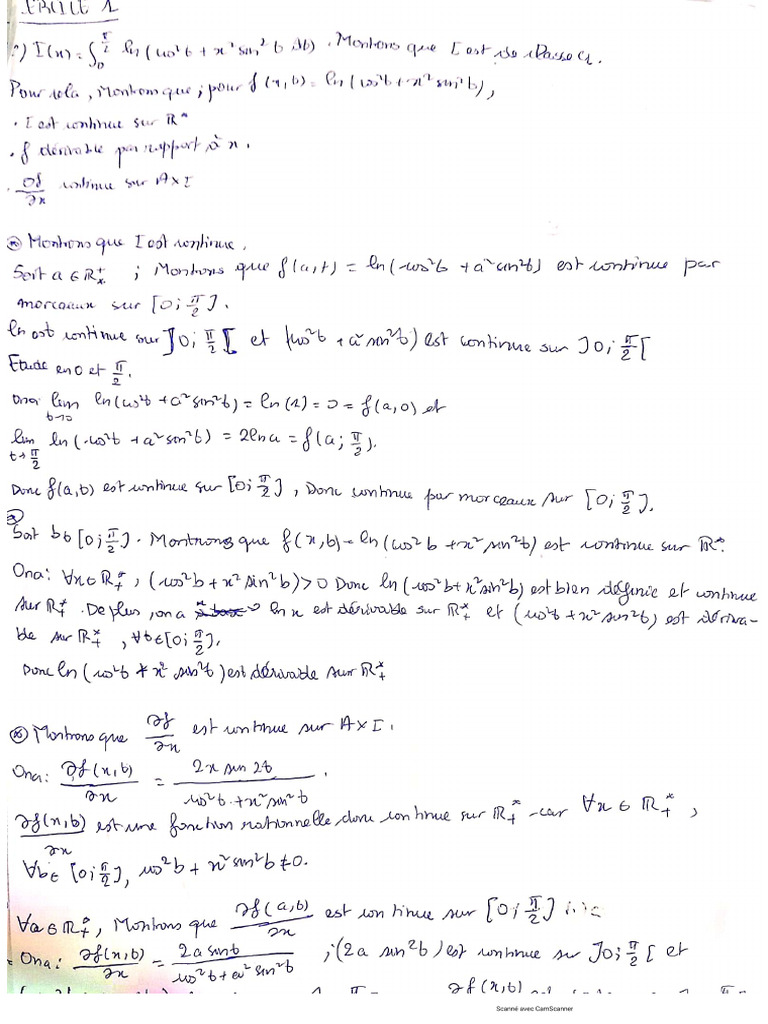 1) I(x) = ∫₀^{π/2} ln(cos²t + x² sin²t dt). Montrons que I est de classe C₁.
Pour cela, Montrons que, pour f(x,t) = ln(cos²t + x² sin²t),
• I est continue sur ℝ*
• f dérivable par rapport à x.
• ∂f/∂x continue sur A×I
⊛ Montrons que I est continue.
Soit a ∈ ℝ₊* ; Montrons que f(a,t) = ln(cos²t + a² sin²t) est continue par
morceaux sur [0; π/2].
ln est continue sur ]0; π/2[ et (cos²t + a² sin²t) est continue sur ]0; π/2[
Etude en 0 et π/2.
Ona: lim t→0 ln(cos²t + a² sin²t) = ln(1) = 0 = f(a,0) et
lim t→π/2 ln(cos²t + a² sin²t) = 2lna = f(a; π/2).
Donc f(a,t) est continue sur [0; π/2], Donc continue par morceaux sur [0; π/2].
Soit t∈[0; π/2]. Montrons que f(x,t) = ln(cos²t + x² sin²t) est continue sur ℝ*.
Ona: ∀x∈ℝ₊*, (cos²t + x² sin²t) > 0 Donc ln(cos²t + x² sin²t) est bien définie et continue
sur ℝ₊*. De plus, on a ln x est dérivable sur ℝ₊* et (cos²t + x² sin²t) est dériva-
ble sur ℝ₊*, ∀t∈[0; π/2].
Donc ln(cos²t + x² sin²t) est dérivable sur ℝ₊*
⊛ Montrons que ∂f/∂x est continue sur A×I.
Ona: ∂f(x,t)/∂x = 2x sin 2t / cos²t + x² sin²t.
∂f(x,t)/∂x est une fonction rationnelle donc continue sur ℝ₊* car ∀x ∈ ℝ₊*,
∀t∈[0; π/2], cos²t + x² sin²t ≠ 0.
∀a∈ℝ₊*, Montrons que ∂f(a,t)/∂x est continue sur [0; π/2]
Ona: ∂f(x,t)/∂x = 2a sin t / cos²t + a² sin²t ; (2a sin²t) est continue sur ]0; π/2[ et
∂f(x,t)
Scanné avec CamScanner